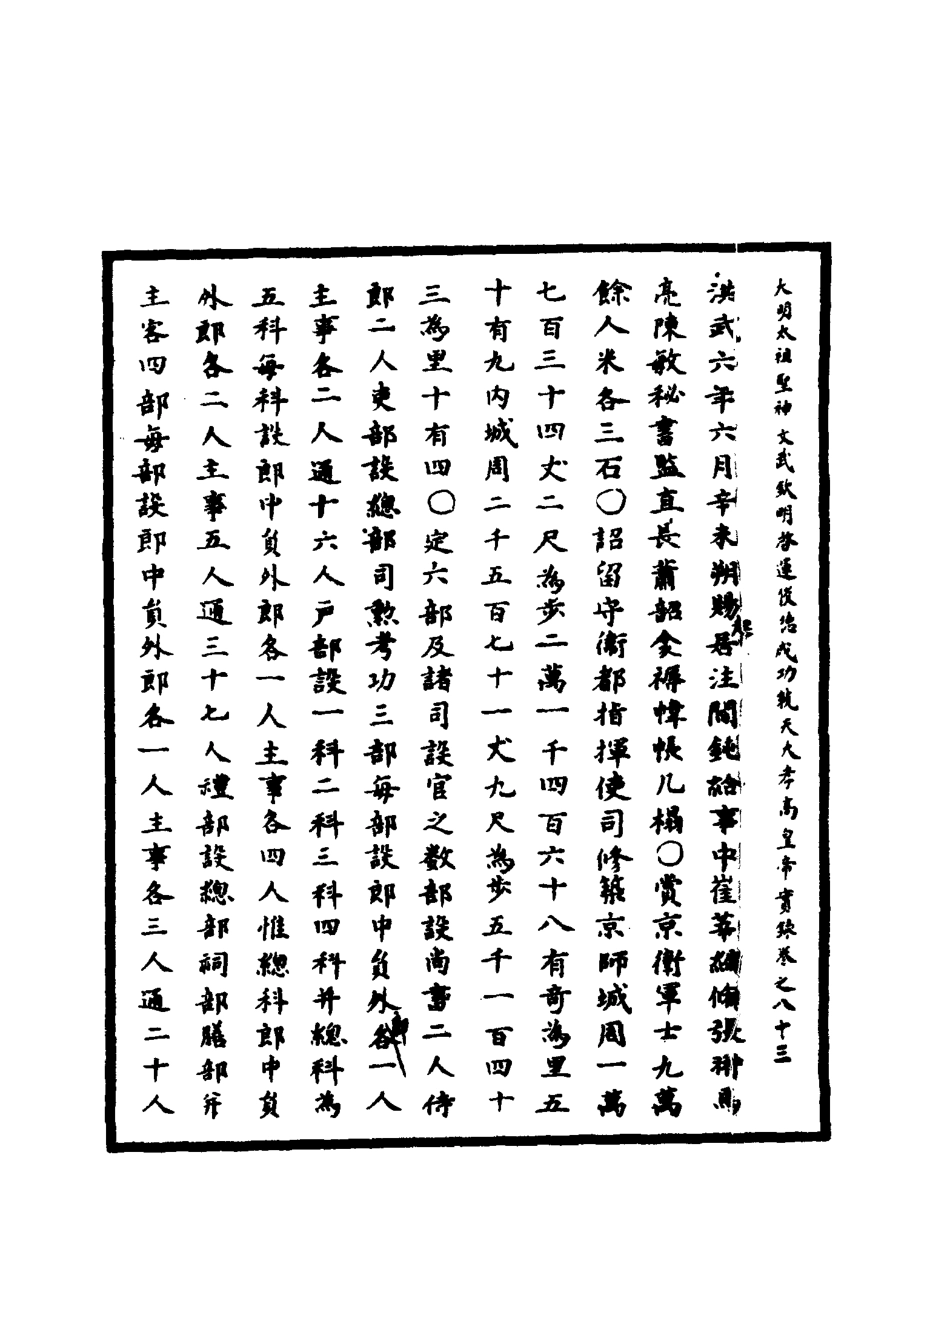 大明太祖聖神文武欽明啓運俊德成功統天大孝高皇帝實錄卷之八十三
洪武六年六月辛未朔賜起居注閻鈍給事中崔莘編修張翀馬
亮陳敏秘書監直長蕭韶衾褥幃帳几榻○賞京衛軍士九萬
餘人米各三石○詔留守衛都指揮使司修築京師城周一萬
七百三十四丈二尺為步二萬一千四百六十八有奇為里五
十有九內城周二千五百七十一丈九尺為步五千一百四十
三為里十有四○定六部及諸司設官之數部設尚書二人侍
郎二人吏部設總部司勲考功三部每部設郎中員外郎各一人
主事各二人通十六人戸部設一科二科三科四科并總科為
五科每科設郎中員外郎各一人主事各四人惟總科郎中員
外郎各二人主事五人通三十七人禮部設總部祠部膳部并
主客四部每部設郎中員外郎各一人主事各三人通二十人